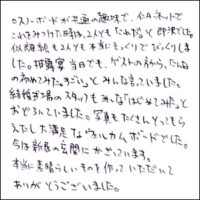 ○スノーボードが共通の趣味で、イン ネットで
これをみつけた時は、2人とも「これだ」と即決でした。
似顔絵も2人とも本当にそっくりでびっくりしま
した。披露宴当日でも、ゲストの方から、「こんな
の初めてみた。すごい」と みんな言っていました。
結婚式場のスタッフも みんな「はじめてみた」と
おどろいていました。写真もたくさんとっても
らえたし 満足なウェルカムボードでした。
今は新居の玄関にかざっています。
本当に素晴らしいものを作っていただいて
ありがとうございました。